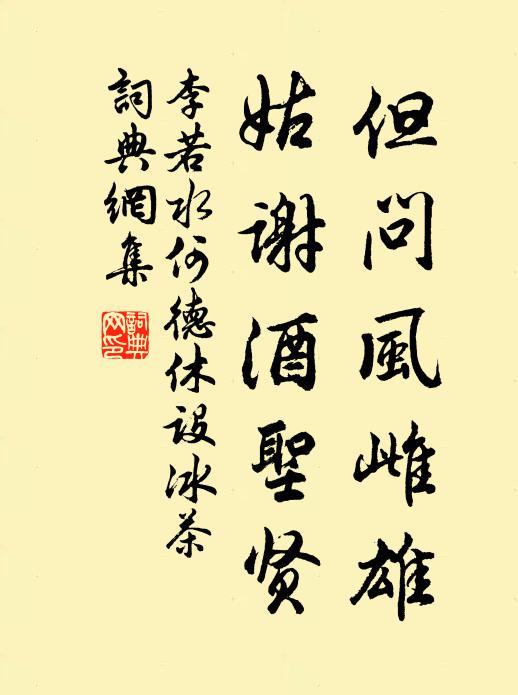 但问風雌雄
姑謝酒聖贤
李若水何德休设冰茶
詞典網集
詞典網印